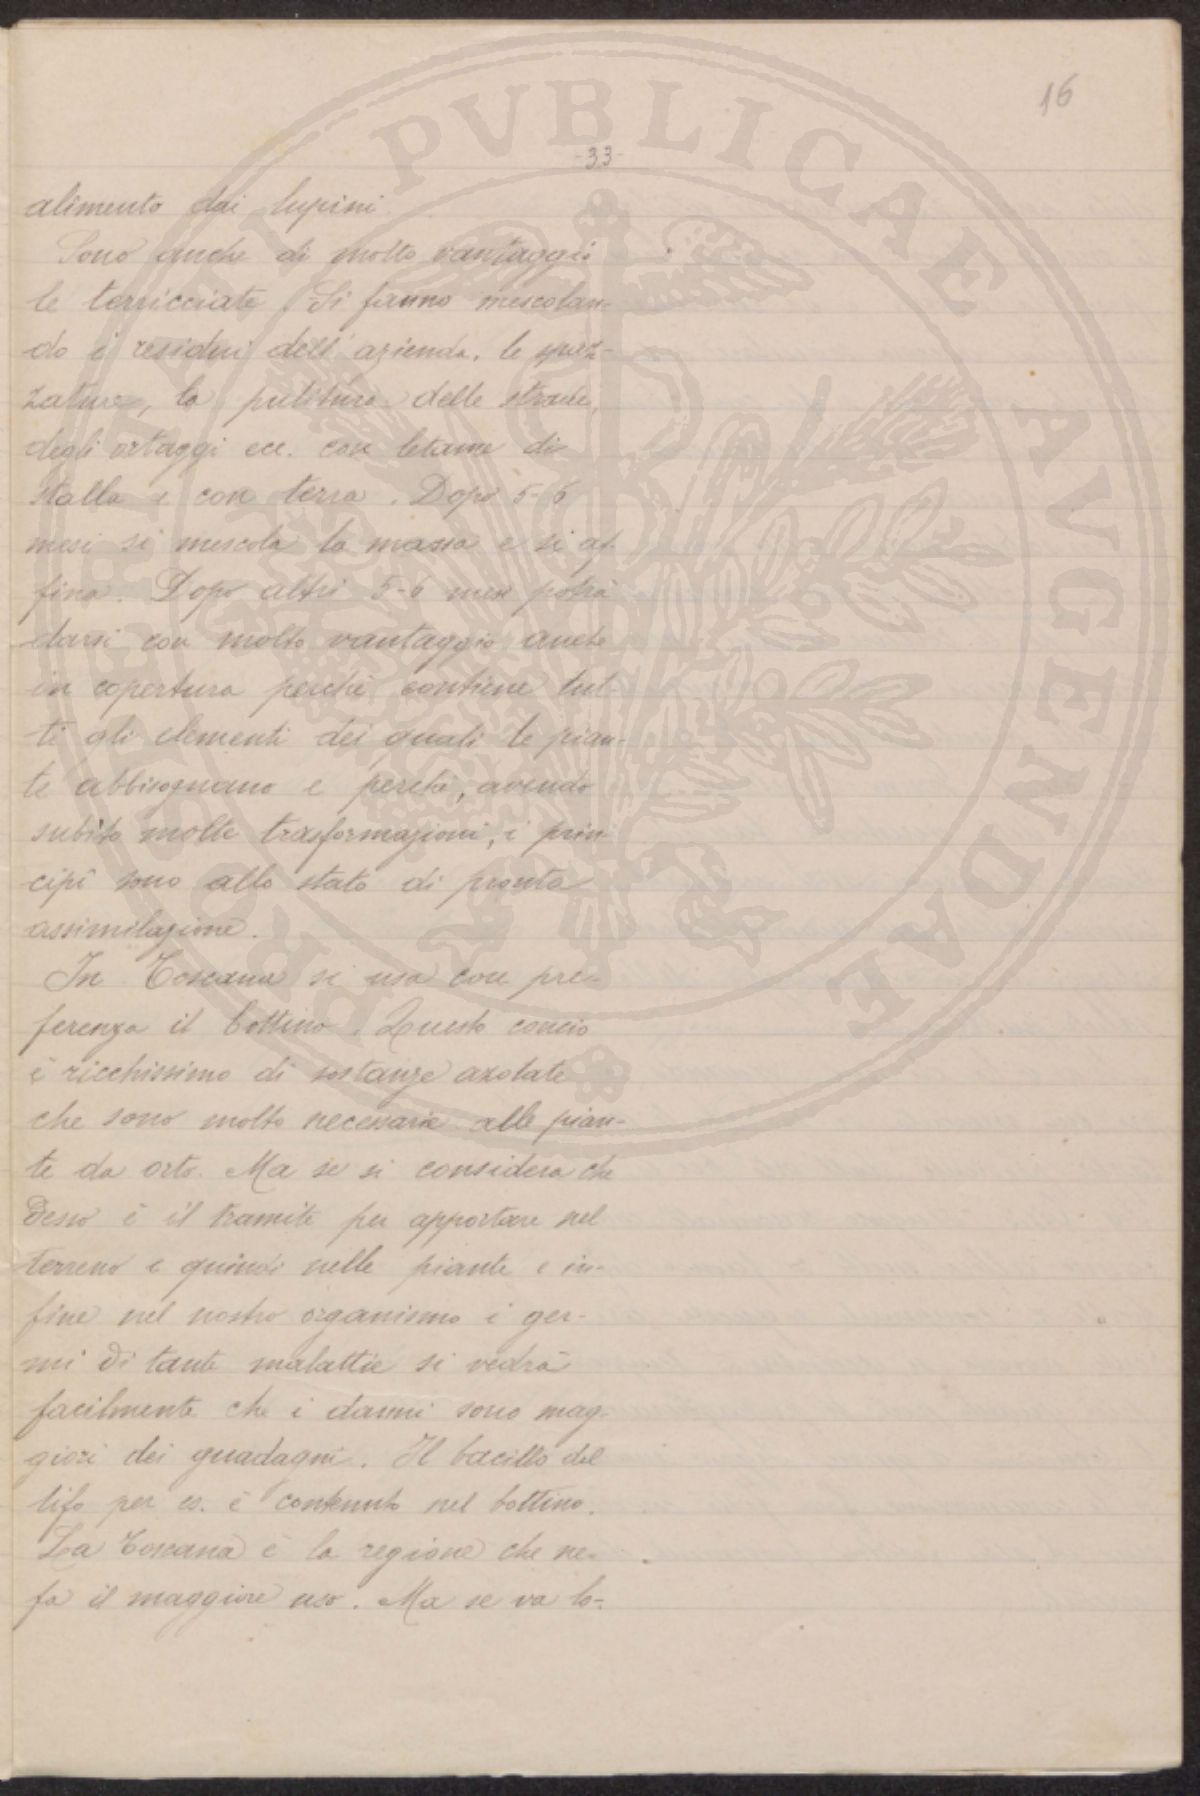 16
-33-
alimento dai lupini.
Sono anche di molto vantaggio
le terricciate. Si fanno mescolan-
do i residui dell'azienda, le spaz-
zature, la pulitura delle strade,
degli ortaggi ecc. con letame di
stalla e con terra. Dopo 5-6
mesi si mescola la massa e si af-
fina. Dopo altri 5-6 mesi potrà
darsi con molto vantaggio anche
in copertura perchè contiene tut-
ti gli elementi dei quali le pian-
te abbisognano e perchè, avendo
subito molte trasformazioni, i prin-
cipî sono allo stato di pronta
assimilazione.
In Toscana si usa con pre-
ferenza il bottino. Questo concio
è ricchissimo di sostanze azotate
che sono molto necessarie alle pian-
te da orto. Ma se si considera che
desso è il tramite per apportare nel
terreno e quindi nelle piante e in-
fine nel nostro organismo i ger-
mi di tante malattie si vedrà
facilmente che i danni sono mag-
giori dei guadagni. Il bacillo del
tifo per es. è contenuto nel bottino.
La Toscana è la regione che ne
fa il maggiore uso. Ma se va lo-
PVBLICAE AVGENDAE